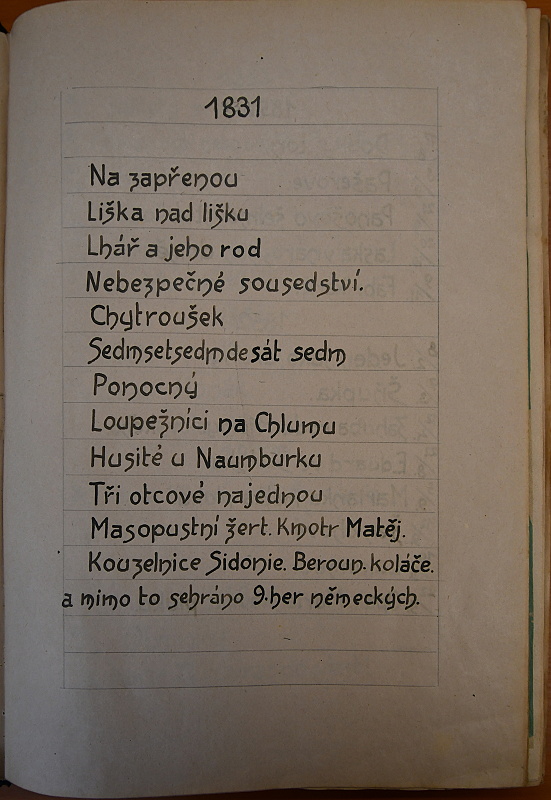 1831
Na zapřenou
Liška nad lišku
Lhář a jeho rod
Nebezpečné sousedství.
Chytroušek
Sedmsetsedmdesát sedm
Ponocný
Loupežníci na Chlumu
Husité u Naumburku
Tři otcové najednou
Masopustní žert. Kmotr Matěj.
Kouzelnice Sidonie. Beroun. koláče.
a mimo to sehráno 9. her německých.